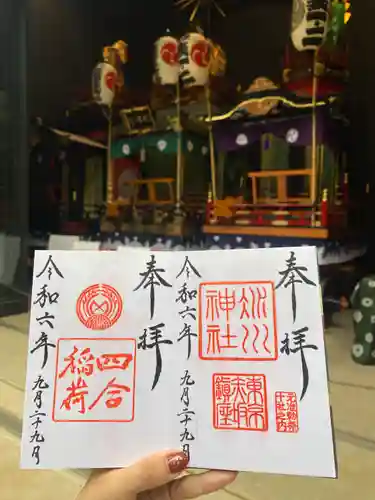 奉拝
氷川
神社
令和六年 九月二十九日
奉拝
四合
稲荷
令和六年 九月二十九日